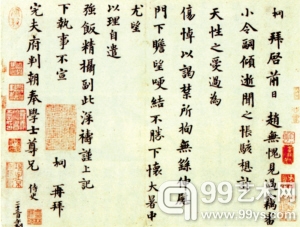 拜啓前日趙無愧見過竊審
小令嗣傾逝聞之悵駭想計
天性之愛過為
傷悼以謁禁所拘無緣伸
門下瞻望哽結不勝下懷大暑中
尤望
以理自遣
強飯精攝副此深禱謹上記
下執事不宣
再拜
完夫府判朝奉學士尊兄 侍史
99艺术网
www.99ys.com